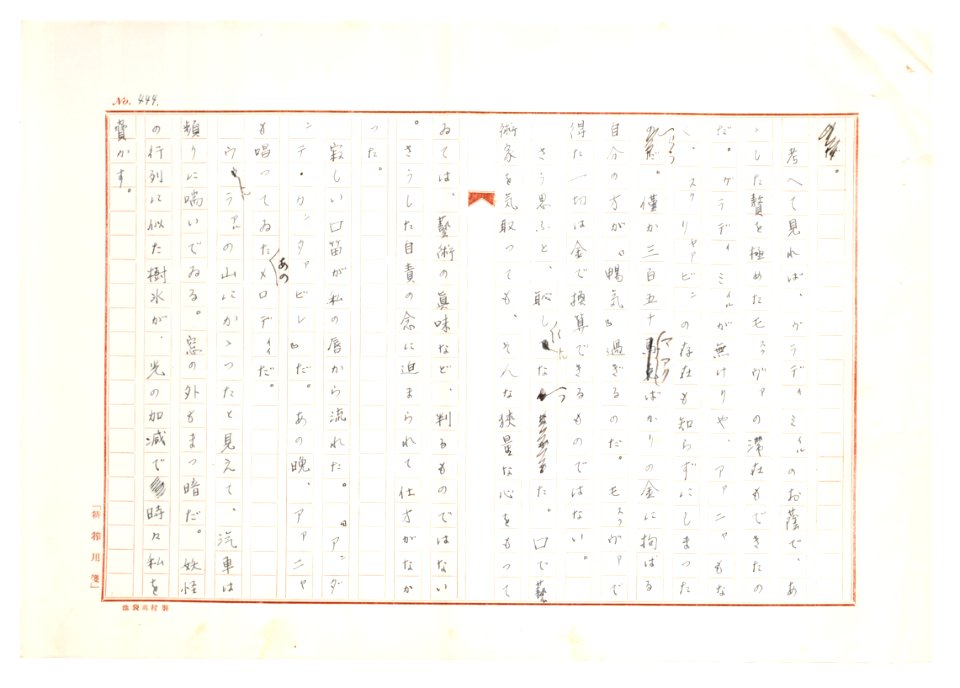 No. 444.
。
考へて見れば、ヴラディミイルのお蔭で、あ
ゝした贅を極めたモスクヴァの滞在もできたの
だ。ヴラディミイルが無けりや、アァニャもな
ヽ、スクリャアビンの存在も知らずにしまった
つらう。僅か三百五十マアクばかりの金に拘はる
自分の方が、暢気過ぎるのだ。モスクヴァで
得た一切は金で換算できるものではない。
さう思ふと、恥しくなった。口で藝
術家を気取っても、そんな狭量な心をもって
ゐては、藝術の眞味など、判るものではない
。さうした自責の念に迫まられて仕方がなか
った。
寂しい口笛が私の唇から流れた。アンダ
ンテ・カンタァビレだ。あの晩、アァニャ
も唱ってゐたあのメロディイだ。
ウラアルの山にかゝったと見えて、汽車は
頻りに喘いでゐる。窓の外もまっ暗だ。妖怪
の行列に似た樹氷が、光の加減で時々私を
脅かす。